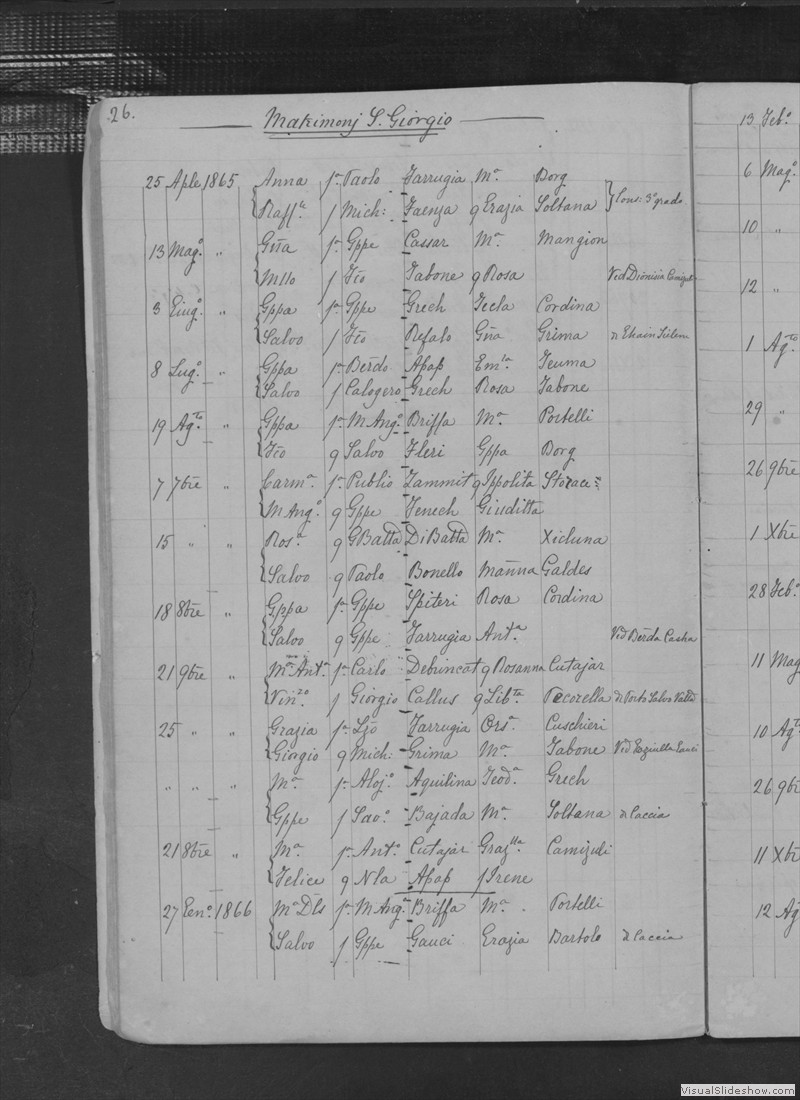 26.
Matrimonj S. Giorgio
25 Aple 1865 Anna fa Paolo Farrugia Ma Borg
Raffle f Mich: Faenza q Grazia Soltana } Cons: 3o grado
13 Mago " Giña fa Gppe Cassar Ma Mangion
Mllo f Fco Tabone q Rosa Vid Dionisia
3 Giugo " Gppa fa Gppe Grech Tecla Cordina
Salvo f Fco Refalo Gña Grima di
8 Lugo " Gppa fa Berdo Apap Emla Teuma
Salvo f Calogero Grech Rosa Tabone
19 Agto " Gppa fa M Ango Briffa Ma Portelli
Fco q Salvo Fleri Gppa Borg
7 7bre " Carma fa Publio Zammit q Ippolita Storace
M Ango q Gppe Fenech Giuditta
15 " " Rosa q GBatta DiBatta Ma Xicluna
Salvo q Paolo Bonello Marina Galdes
18 8bre " Gppa fa Gppe Spiteri Rosa Cordina
Salvo q Gppe Farrugia Anta Vid Berda Casha
21 9bre " Ma Anta fa Carlo Debrincat q Rosanna Cutajar
Vinzo f Giorgio Callus q Libta Pecorella di Porto Salvo Valta
25 " " Grazia fa Lzo Farrugia Orsa Cuschieri
Giorgio q Mich: Grima Ma Tabone Vid Gauci
" " " Ma fa Alojo Aquilina Teoda Grech
Gppe f Savo Bajada Ma Soltana di Caccia
21 8bre " Ma fa Anto Cutajar Grazlla Camizuli
Felice q Nla Apap f Irene
27 Geno 1866 Ma Dls fa M Ango Briffa Ma Portelli
Salvo f Gppe Gauci Grazia Bartolo di Caccia
13 Febo
6 Mago
10 "
12 "
1 Agto
29 "
26 9bre
1 Xbre
28 Febo
11 Mag
10 Agto
26 9bre
11 Xbre
12 Ag
VisualSlideshow.com